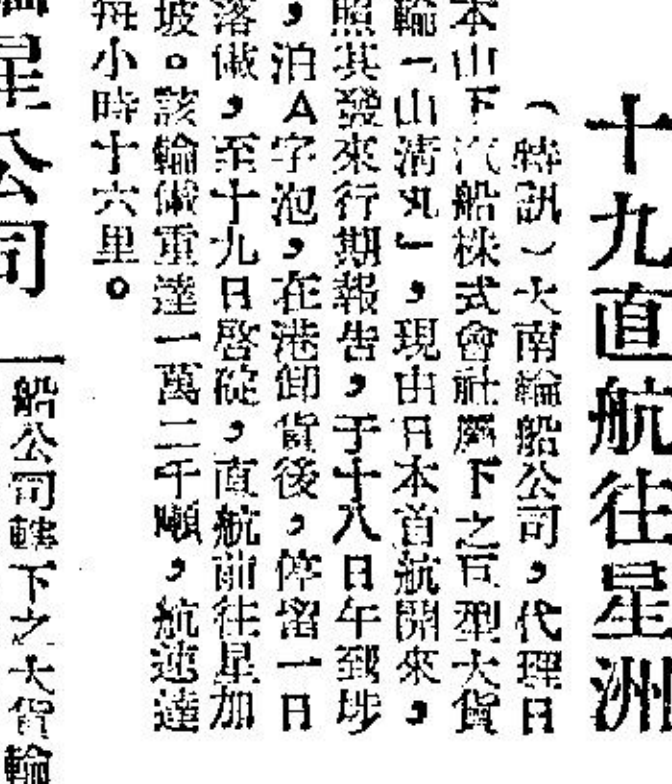 十九直航往星洲
（特訊）大南輪船公司，代理日
本山下汽船株式會社屬下之巨型大貨
輪「山清丸」，現由日本首航開來，
照其發來行期報告，于十八日午到埗
，泊A字泡，在港卸貨後，停留一日
落儎，至十九日啓碇，直航前往星加
坡。該輪儎重達一萬二千噸，航速達
每小時十六里。
星公司
船公司轄下之大貨輪